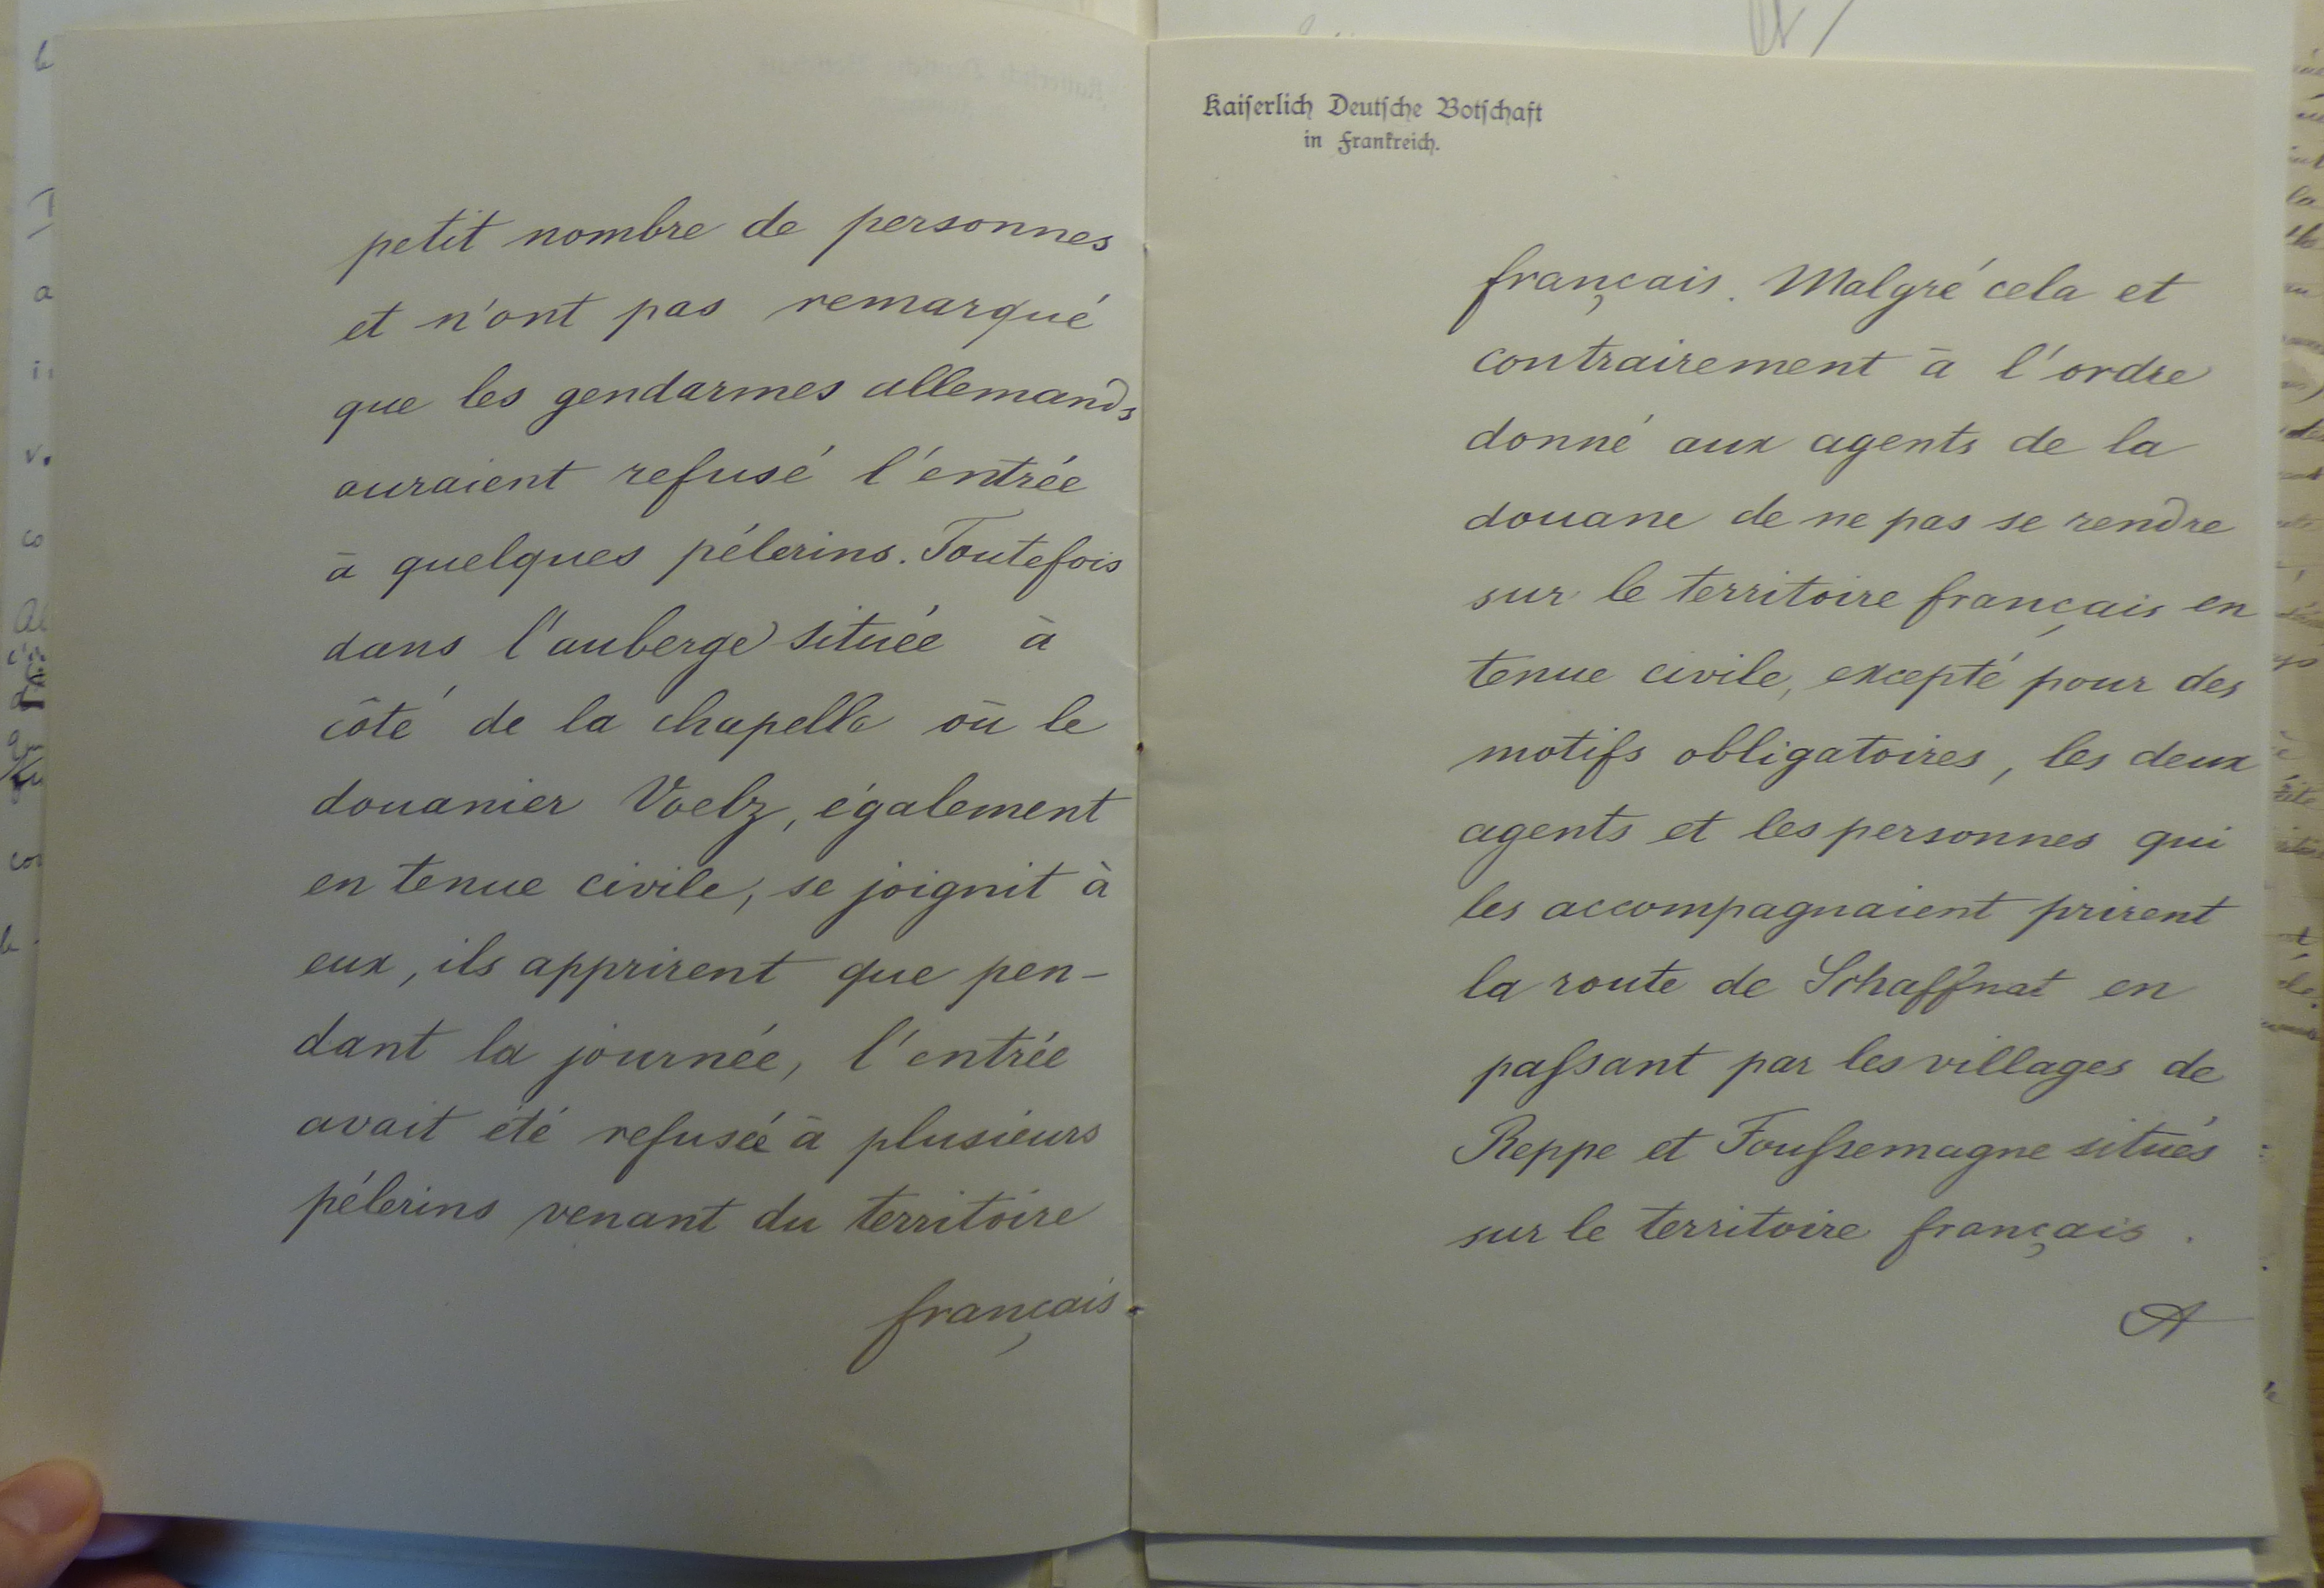 petit nombre de personnes
et n'ont pas remarqué
que les gendarmes allemands
auraient refusé l'entrée
à quelques pélerins. Toutefois
dans l'auberge située à
côté de la chapelle où le
douanier Voelz, également
en tenue civile, se joignit à
eux, ils apprirent que pen-
dant la journée, l'entrée
avait été refusée à plusieurs
pélerins venant du territoire
français.
Kaiserlich Deutsche Botschaft
in Frankreich.
français. Malgré cela et
contrairement à l'ordre
donné aux agents de la
douane de ne pas se rendre
sur le territoire français en
tenue civile, excepté pour des
motifs obligatoires, les deux
agents et les personnes qui
les accompagnaient prirent
la route de Schaffnat en
paſsant par les villages de
Reppe et Fouſsemagne situés
sur le territoire français.